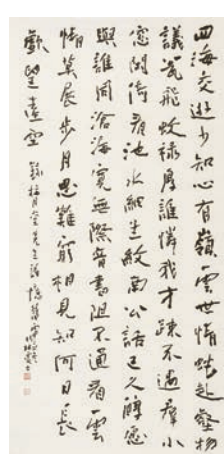 四海交遊少知心有嶺雲世情蛇赴壑物
議飛蚊祿厚誰憐我才疎不過羣小
窓閑倚看池水細生紋南公話已久
與誰同滄海寬無際音書阻不通看雲
情莫展步月思難窮相見知何日長
歎望遠空